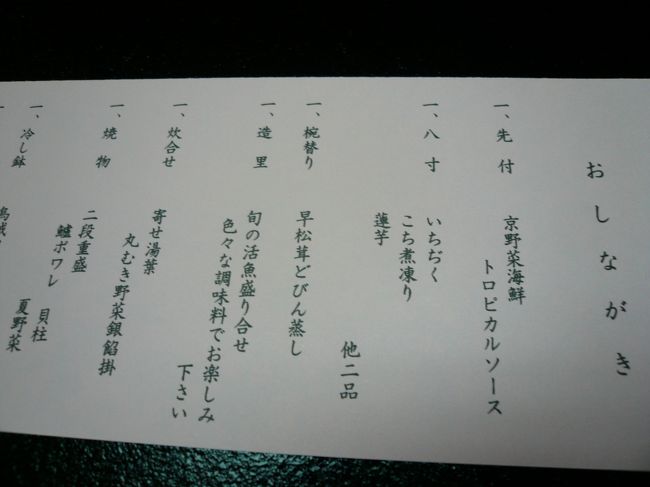 おしながき
一、先付
京野菜海鮮
トロピカルソース
一、八寸
いちぢく
こち煮凍り
蓮芋
他二品
一、椀替り
早松茸どびん蒸し
一、造里
旬の活魚盛り合せ
色々な調味料でお楽しみ
下さい
一、炊合せ
寄せ湯葉
丸むき野菜銀餡掛
一、焼物
二段重盛
鱸ポワレ 貝柱
夏野菜
一、冷し鉢